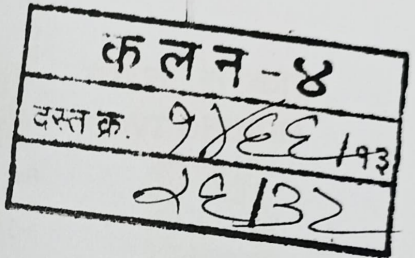 कलन - ४
दस्त क्र. १४६६/१३
२६/३२